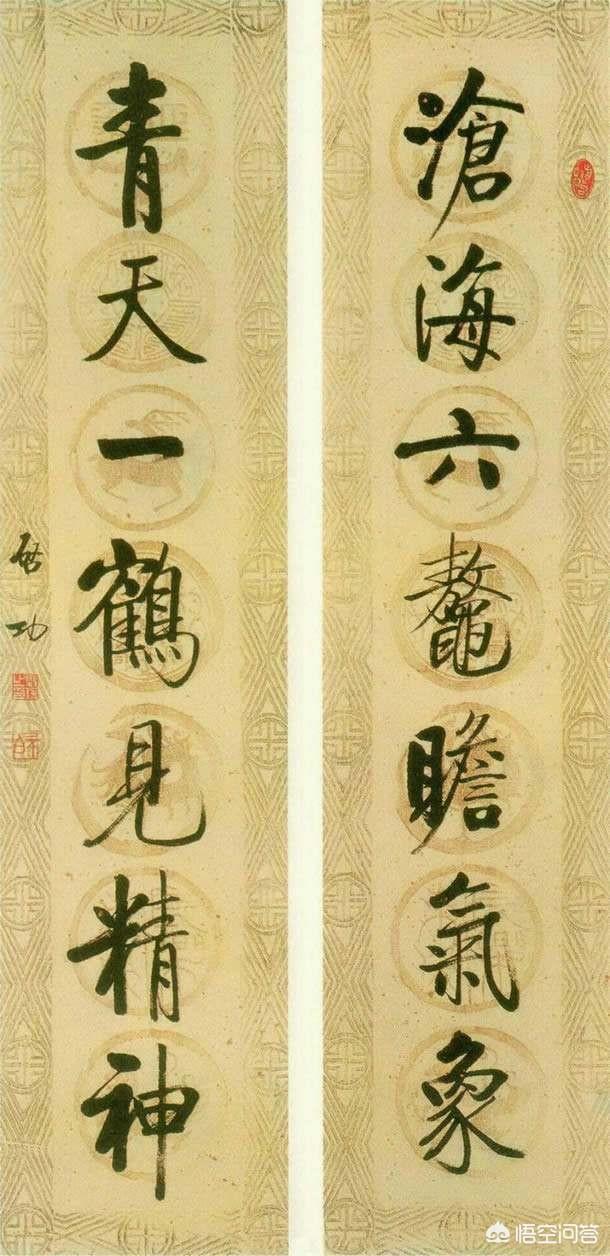 滄海六鼇瞻氣象
青天一鶴見精神
啓功
悟空问答